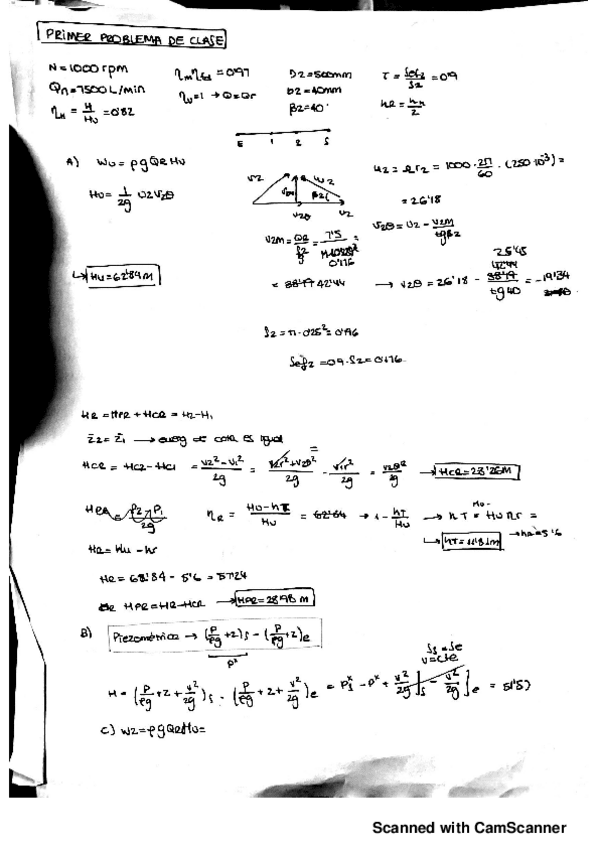 PRIMER PROBLEMA DE CLASE
N = 1000 rpm
Qn = 7500 L/min
ηH = H/Hu = 0'82
ηm ηfd = 0'97
ηv = 1 → Q = Qr
D2 = 500mm
b2 = 40mm
β2 = 40°
τ = Sef2/S2 = 0'9
hR = hH/2
E 1 2 S
A) Wu = ρgQRHu
Hu = 1/2g U2V2θ
→ Hu = 62'84 M
V2 W2 V2M β2 V2θ U2
U2 = Ωr2 = 1000 · 2π/60 · (250·10⁻³) =
= 26'18
V2θ = U2 - V2M/tgβ2
V2M = QR/S2 = 7'5/0'176 =
= 42'44
→ V2θ = 26'18 - /tg40 = -19'34
S2 = π · 0'25² = 0'196
Sef2 = 0'9 · S2 = 0'176
HR = HPR + HCR = H2 - H1
Z2 = Z1 → energ de cota es igual
HCR = HC2 - HC1 = V2² - V1²/2g = V2r² + V2θ²/2g - V1r²/2g = V2θ²/2g → HCR = 28'26M
HPR = P2 - P1/2g
ηR = Hu - hr/Hu = → 1 - hT/Hu → hT = Hu ηr =
→ hT = 11'31m
→ hR = 5'6
HR = Hu - hr
HR = 62'84 - 5'6 = 57'24
HPR = HR - HCR → HPR = 28'98 M
B) Piezométrica → (P/ρg + z)s - (P/ρg + z)e
P*
Ss = Se
V = cte
H = (P/ρg + z + V²/2g)s - (P/ρg + z + V²/2g)e = Ps* - P* + V²/2g]s - V²/2g]e = 51'5)
C) W2 = ρgQRHu =
Scanned with CamScanner